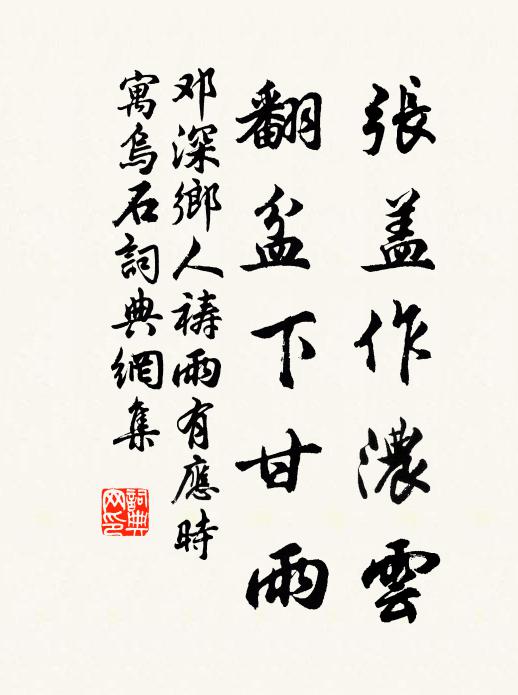 張盖作濃雲
翻盆下甘雨
邓深鄉人禱雨有應時
寓烏石詞典網集
詞典网印